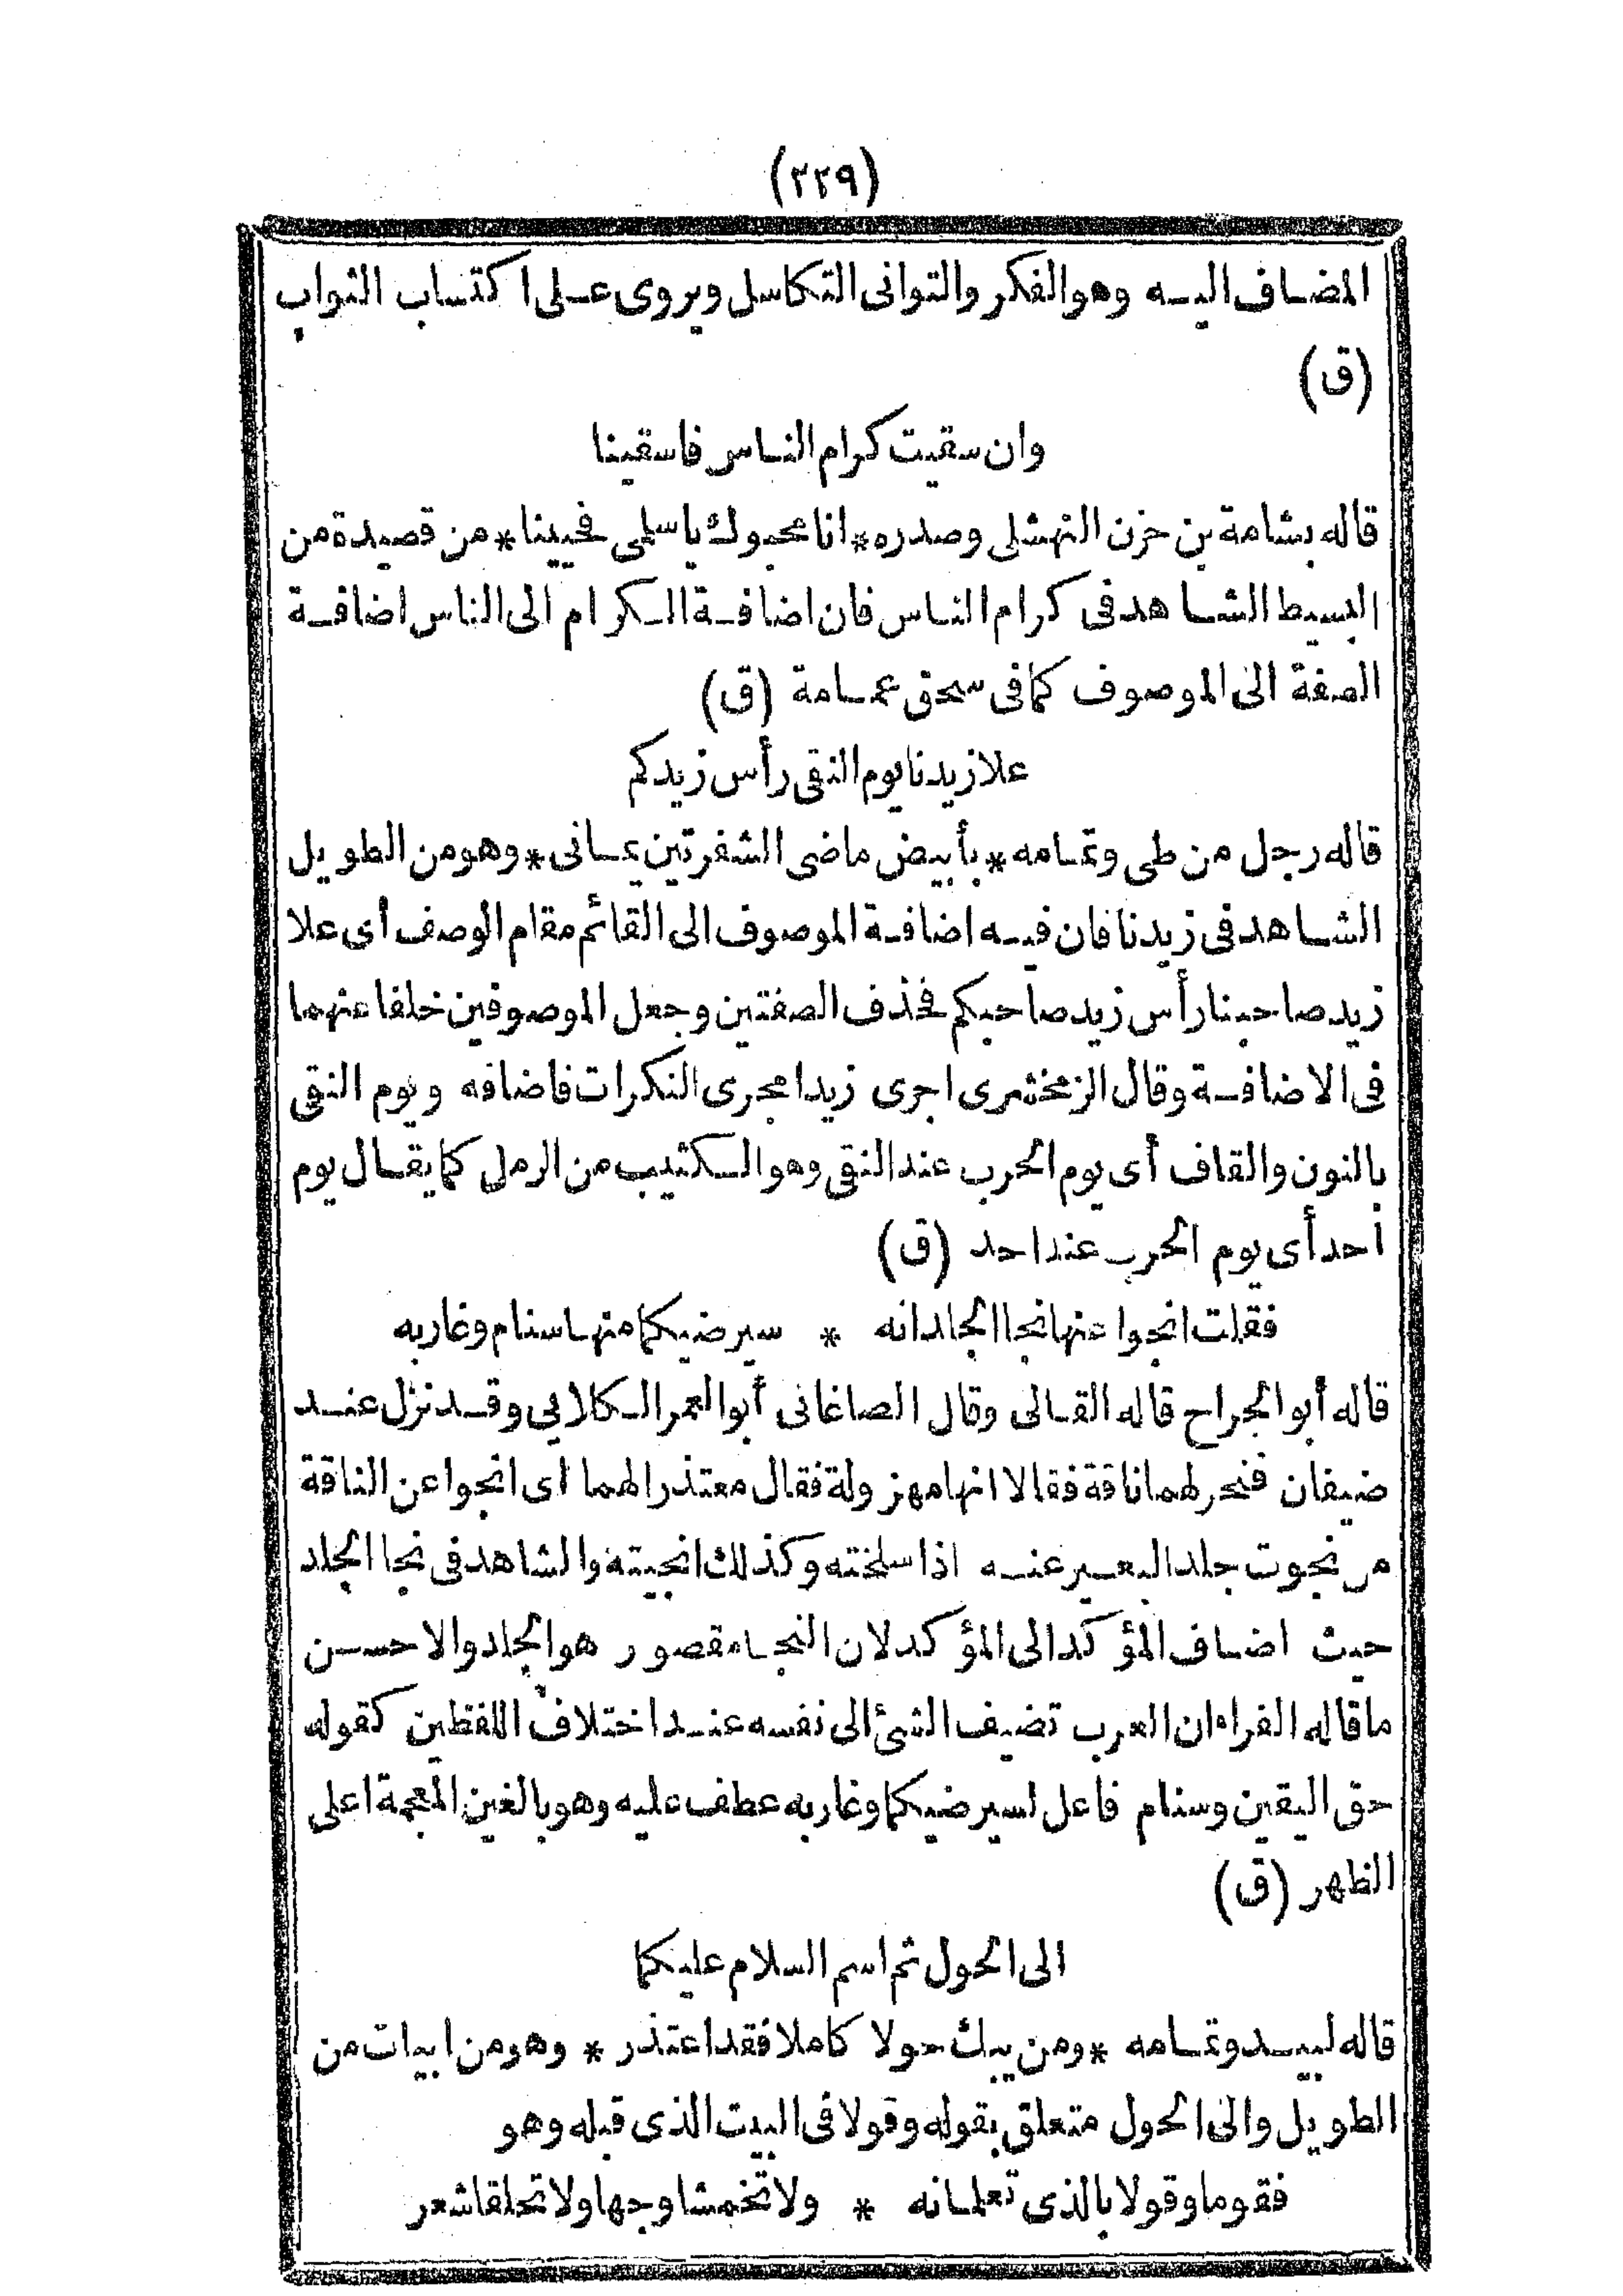 (٢٢٩)
المضاف اليه وهو الفكر والتوانى التكاسل ويروى على اكتساب الثواب
(ق)
وان سقيت كرام الناس فاسقينا
قاله بشامة بن حزن النهشلى وصدره * انا محبوك يا سلمى فحيينا * من قصيدة من
البسيط الشاهد فى كرام الناس فان اضافة الكرام الى الناس اضافة
الصفة الى الموصوف كما فى سحق عمامة (ق)
علا زيدنا يوم النقى رأس زيدكم
قاله رجل من طى وتمامه * بأبيض ماضى الشفرتين يمانى * وهو من الطويل
الشاهد فى زيدنا فان فيه اضافة الموصوف الى القائم مقام الوصف أى علا
زيد صاحبنا رأس زيد صاحبكم فحذف الصفتين وجعل الموصوفين خلفا عنهما
فى الاضافة وقال الزمخشرى اجرى زيدا مجرى النكرات فاضافه ويوم النقى
بالنون والقاف أى يوم الحرب عند النقى وهو الكثيب من الرمل كما يقال يوم
أحد أى يوم الحرب عند احد (ق)
فقلت انجوا عنها نجا الجلد انه * سيرضيكما منها سنام وغاربه
قاله أبو الجراح قاله القالى وقال الصاغانى أبو العمر الكلابى وقد نزل عند
ضيفان فنحر لهما ناقة فقالا انها مهزولة فقال معتذرا لهما اى انجوا عن الناقة
من نجوت جلد البعير عنه اذا سلخته وكذلك انجيته والشاهد فى نجا الجلد
حيث اضاف المؤكد الى المؤكد لان النجا مقصور هو الجلد والاحسن
ما قاله الفراء ان العرب تضيف الشئ الى نفسه عند اختلاف اللفظين كقوله
حق اليقين وسنام فاعل لسيرضيكما وغاربه عطف عليه وهو بالغين المعجمة اعلى
الظهر (ق)
الى الحول ثم اسم السلام عليكما
قاله لبيد وتمامه * ومن يبك حولا كاملا فقد اعتذر * وهو من ابيات من
الطويل والى الحول متعلق بقوله وقولا فى البيت الذى قبله وهو
فقوما وقولا بالذى تعلمانه * ولا تخمشا وجها ولا تحلقا شعر